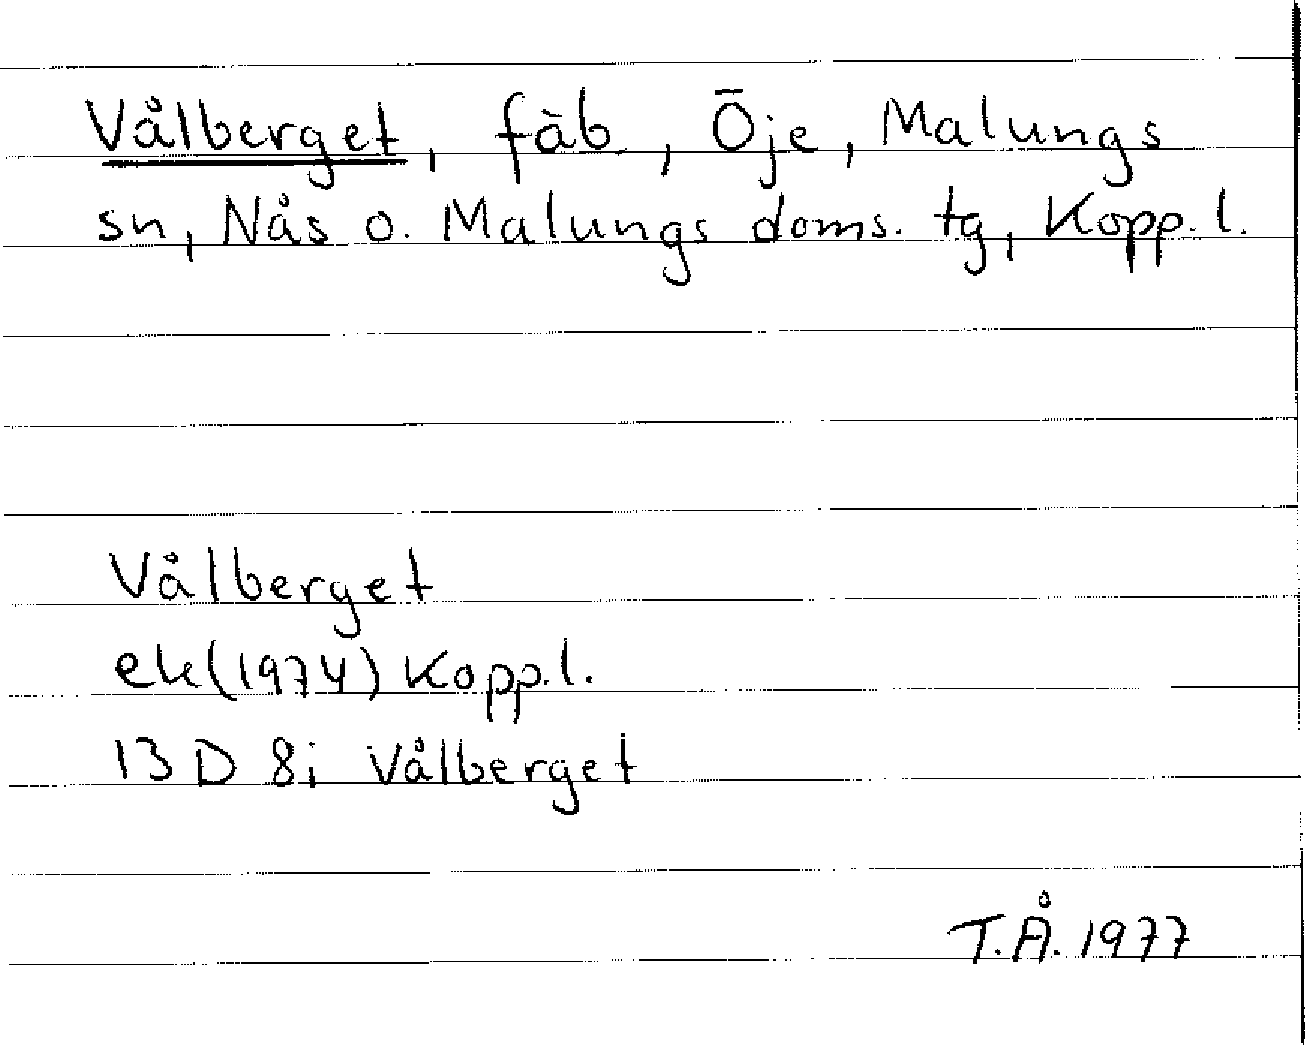 Vålberget, fäb., Öje, Malungs
sn, Nås o. Malungs doms. tg, Kopp. l.
Vålberget
ek (1974) Kopp. l.
13 D 8i Vålberget
T.Å. 1977